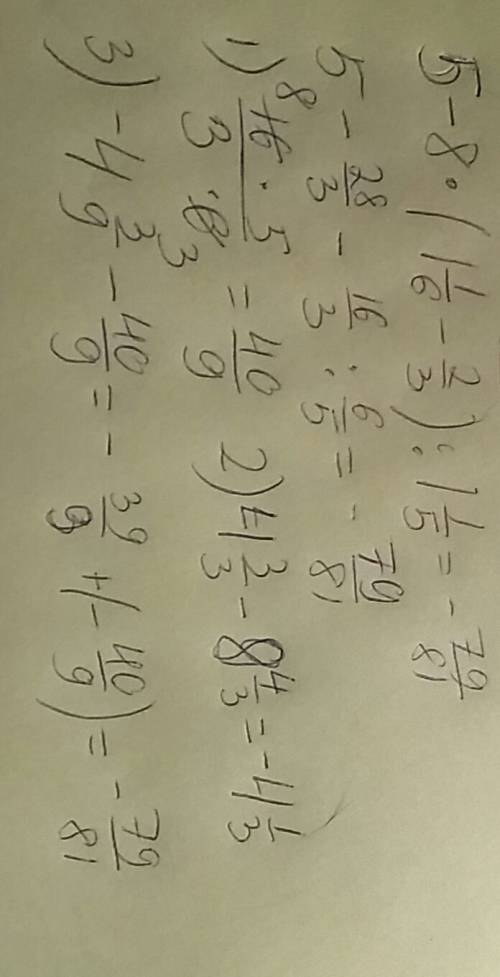 5 - 8 · (1 1/6 - 2/3) : 1 1/5 = - 79/81
5 - 28/3 - 16/3 : 6/5 = - 79/81
1) 16 · 5 / 3 · 6 = 40/9 2) 4 3/3 - 8 4/3 = - 4 1/3
8 3
3) - 4 3/9 - 40/9 = - 39/9 + (- 40/9) = - 79/81